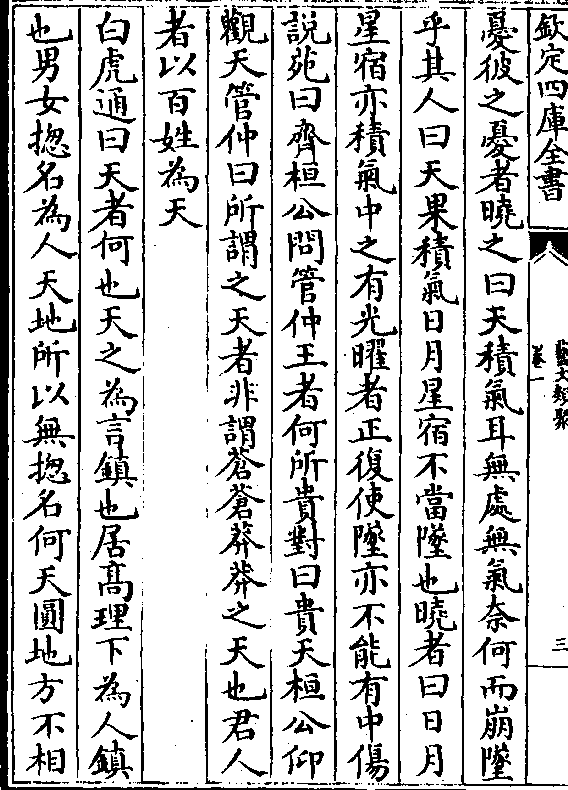 欽定四庫全書
藝文類聚
卷一
三
憂彼之憂者曉之曰天積氣耳無處無氣奈何而崩墜
乎其人曰天果積氣日月星宿不當墜也曉者曰日月
星宿亦積氣中之有光曜者正復使墜亦不能有中傷
說苑曰齊桓公問管仲王者何所貴對曰貴天桓公仰
觀天管仲曰所謂之天者非謂蒼蒼莽莽之天也君人
者以百姓為天
白虎通曰天者何也天之為言鎮也居髙理下為人鎮
也男女揔名為人天地所以無揔名何天圓地方不相